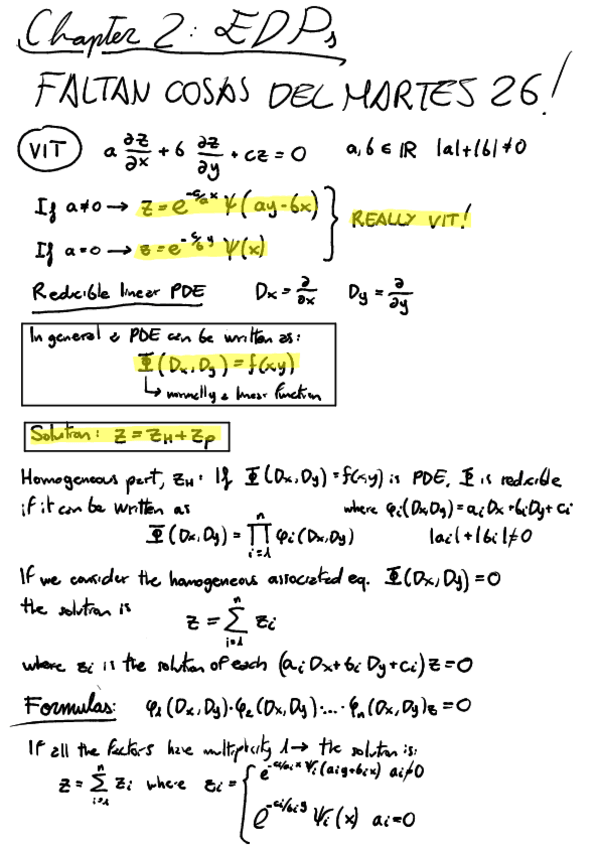 Chapter 2: EDPs
FALTAN COSAS DEL MARTES 26!
VIT a ∂z/∂x + b ∂z/∂y + cz = 0 a, b ∈ IR |a|+|b| ≠ 0
If a≠0 → z = e^{-c/a x} ψ(ay-bx)
REALLY VIT!
If a=0 → z = e^{-c/b y} ψ(x)
Reducible linear PDE Dx = ∂/∂x Dy = ∂/∂y
In general a PDE can be written as:
Φ(Dx, Dy) = f(x,y)
↳ normally a linear function
Solution: z = z_H + z_p
Homogeneous part, z_H: If Φ(Dx, Dy) = f(x,y) is PDE, Φ is reducible
if it can be written as where φi(Dx,Dy) = aiDx + biDy + ci
Φ(Dx, Dy) = ∏_{i=1}^{n} φi(Dx, Dy) |ai|+|bi| ≠ 0
If we consider the homogeneous associated eq. Φ(Dx, Dy) = 0
the solution is z = ∑_{i=1}^{n} zi
where zi is the solution of each (ai Dx + bi Dy + ci) z = 0
Formulas: φ1(Dx, Dy)·φ2(Dx, Dy)·...·φn(Dx, Dy)z = 0
If all the factors have multiplicity 1 → the solution is:
z = ∑_{i=1}^{n} zi where zi = { e^{-ci/ai x} ψi(aiy+bix) ai≠0
e^{-ci/bi y} ψi(x) ai=0